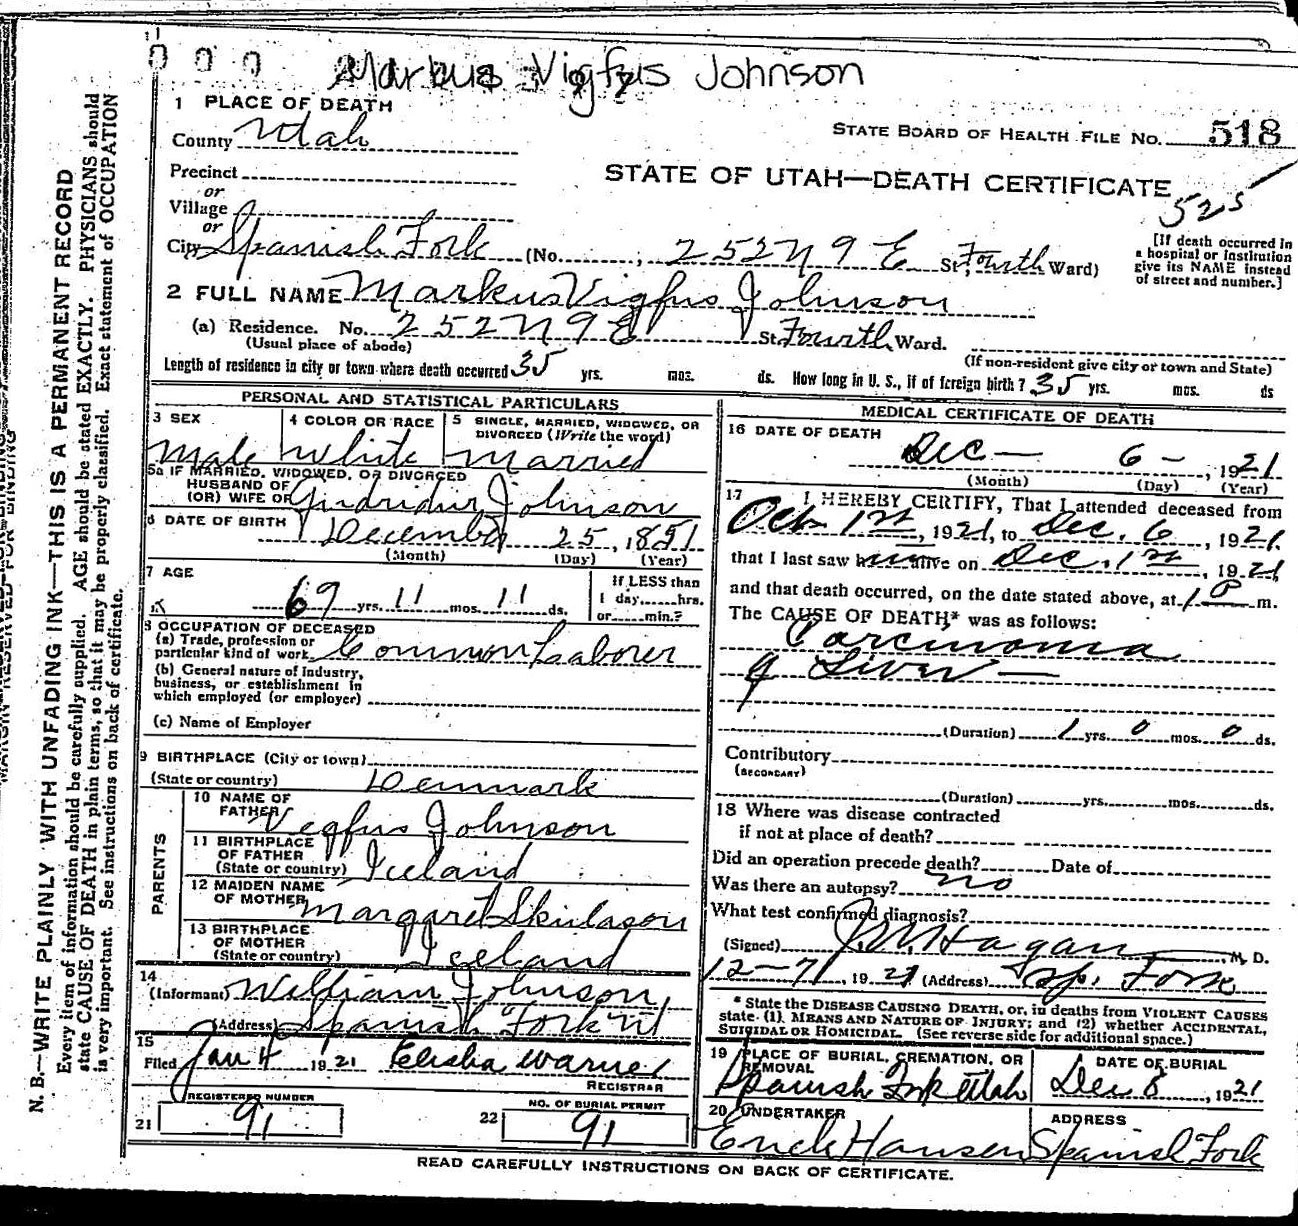 Markus Vigfus Johnson
1 PLACE OF DEATH
County Utah
STATE BOARD OF HEALTH FILE No. 518
Precinct
STATE OF UTAH—DEATH CERTIFICATE
or
Village
525
or
City Spanish Fork (No. ; 252 N 9 E St., Fourth Ward)
[If death occurred in
a hospital or institution
give its NAME instead
of street and number.]
2 FULL NAME Markus Vigfus Johnson
(a) Residence. No. 252 N 9 E St. Fourth Ward.
(Usual place of abode)
(If non-resident give city or town and State)
Length of residence in city or town where death occurred 35 yrs. mos. ds. How long in U. S., if of foreign birth? 35 yrs. mos. ds
PERSONAL AND STATISTICAL PARTICULARS
3 SEX
Male
4 COLOR OR RACE
White
5 SINGLE, MARRIED, WIDOWED, OR
DIVORCED (Write the word)
Married
5a IF MARRIED, WIDOWED, OR DIVORCED
HUSBAND OF
(OR) WIFE OF Gudridur Johnson
6 DATE OF BIRTH December 25, 1851
(Month) (Day) (Year)
7 AGE
69 yrs. 11 mos. 11 ds.
If LESS than
1 day......hrs.
or......min.?
8 OCCUPATION OF DECEASED
(a) Trade, profession or
particular kind of work Common Laborer
(b) General nature of industry,
business, or establishment in
which employed (or employer)
(c) Name of Employer
9 BIRTHPLACE (City or town)
(State or country) Denmark
PARENTS
10 NAME OF
FATHER Vigfus Johnson
11 BIRTHPLACE
OF FATHER
(State or country) Iceland
12 MAIDEN NAME
OF MOTHER Margaret Skulason
13 BIRTHPLACE
OF MOTHER
(State or country) Iceland
14
(Informant) William Johnson,
(Address) Spanish Fork Ut
15
Filed Jan 4 1921 Elisha Warner
REGISTRAR
REGISTERED NUMBER
21 91
NO. OF BURIAL PERMIT
22 91
MEDICAL CERTIFICATE OF DEATH
16 DATE OF DEATH
Dec — 6 –, 1921
(Month) (Day) (Year)
17 I HEREBY CERTIFY, That I attended deceased from
Oct 1st, 1921, to Dec. 6, 1921.
that I last saw him alive on Dec. 1st, 1921,
and that death occurred, on the date stated above, at 1 P m.
The CAUSE OF DEATH* was as follows:
Carcinoma
of Liver —
(Duration) 1 yrs. 0 mos. 0 ds.
Contributory
(SECONDARY)
(Duration) yrs. mos. ds.
18 Where was disease contracted
if not at place of death?
Did an operation precede death? Date of
Was there an autopsy? no
What test confirmed diagnosis?
(Signed) Hagan M. D.
12–7, 1921 (Address) Sp. Fork
* State the DISEASE CAUSING DEATH, or, in deaths from VIOLENT CAUSES
state (1) MEANS AND NATURE OF INJURY; and (2) whether ACCIDENTAL,
SUICIDAL OR HOMICIDAL. (See reverse side for additional space.)
19 PLACE OF BURIAL, CREMATION, OR
REMOVAL
Spanish Fork Utah
DATE OF BURIAL
Dec 8, 1921
20 UNDERTAKER
Erick Hansen
ADDRESS
Spanish Fork
READ CAREFULLY INSTRUCTIONS ON BACK OF CERTIFICATE.
MARGIN RESERVED FOR BINDING
N. B.—WRITE PLAINLY WITH UNFADING INK—THIS IS A PERMANENT RECORD
Every item of information should be carefully supplied. AGE should be stated EXACTLY. PHYSICIANS should
state CAUSE OF DEATH in plain terms, so that it may be properly classified. Exact statement of OCCUPATION
is very important. See instructions on back of certificate.